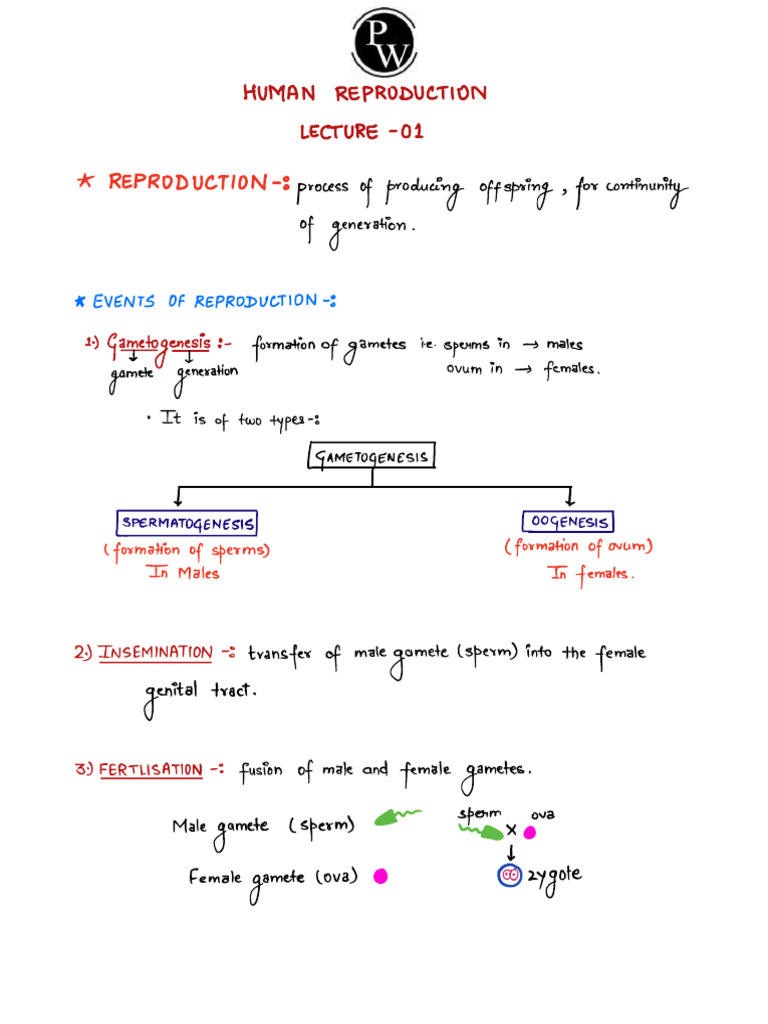 P
W
HUMAN REPRODUCTION
LECTURE -01
* REPRODUCTION-: process of producing offspring, for continunity
of generation.
* EVENTS OF REPRODUCTION-:
1.) Gametogenesis:- formation of gametes i.e. sperms in → males
gamete generation ovum in → females.
• It is of two types-:
GAMETOGENESIS
SPERMATOGENESIS OOGENESIS
(formation of sperms) (formation of ovum)
In Males In females.
2.) INSEMINATION -: transfer of male gamete (sperm) into the female
genital tract.
3.) FERTLISATION -: fusion of male and female gametes.
Male gamete (sperm) sperm X ova
Female gamete (ova) zygote